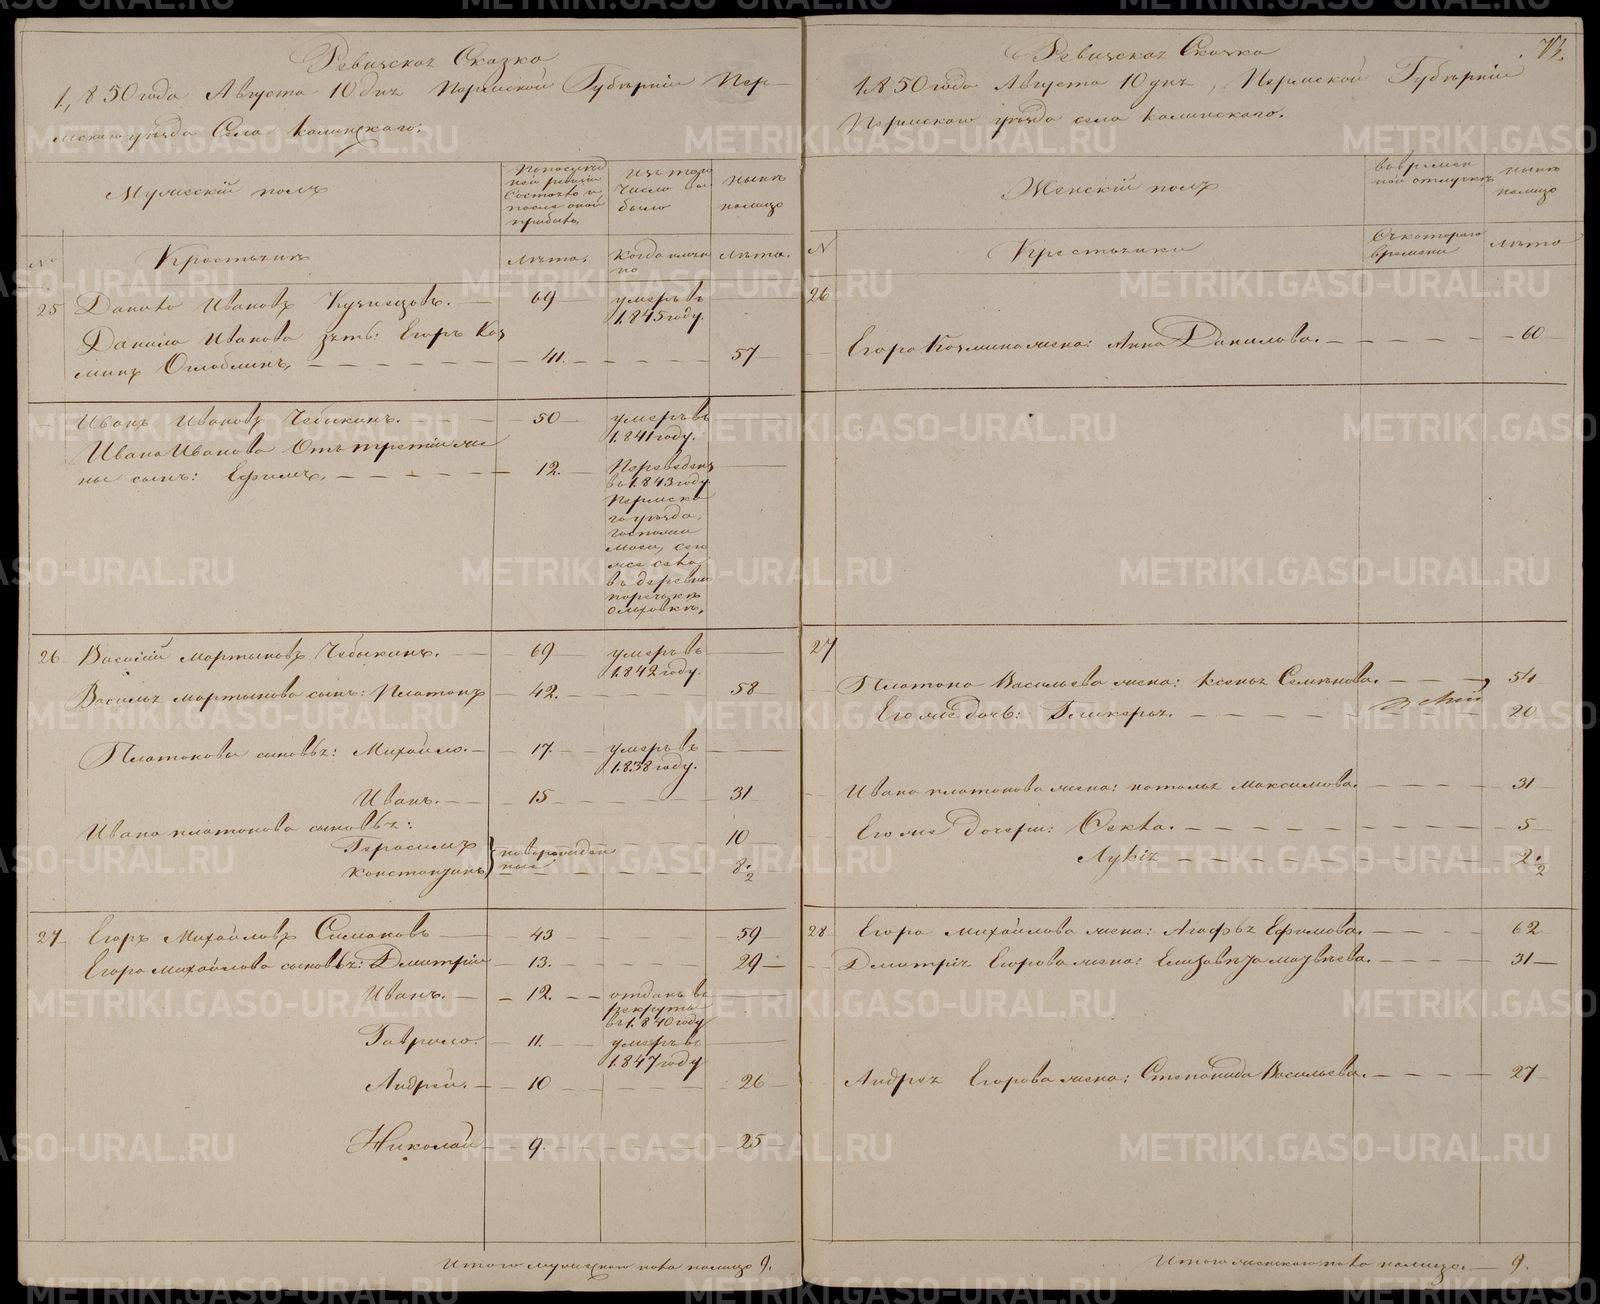 Ревизская Сказка
1850 года Августа 10 дня Пермской Губерніи Пер-
мскаго уѣзда Села Калинскаго.
Мужескій полъ
По последней ревизіи Состояло и после оной прибыло
Изъ того числа выбыло
Нынѣ налицо
№
Крестьянѣ
Лѣта.
Когда имянно
Лѣта.
25 Данило Ивановъ Кузнецовъ. 69 умеръ въ 1845 году.
Данила Иванова зять: Егоръ Коз
минъ Оглоблинъ, 41. 57
Иванъ Ивановъ Чебыкинъ. 50 умеръ въ 1841 году.
Ивана Иванова Отъ третій же
ны сынъ: Ефимъ, 12. Переведенъ
въ 1843 году
Пермска
го уѣзда,
въ деревню
26 Василій Мартыновъ Чебыкинъ. 69 умеръ въ 1842 году.
Василья Мартынова сынъ: Платонъ 42. 58
Платоновы сыновья: Михайло. 17. умеръ въ 1838 году.
Иванъ. 15 31
Ивана Платонова сыновья:
Герасимъ 10
Константинъ новорожденные 8.½
27 Егоръ Михайловъ Симановъ 43 59
Егора Михайлова сыновья: Дмитрій 13. 29
Иванъ. 12. отданъ въ рекруты въ 1840 году
Гаврило. 11. умеръ въ 1847 году
Андрей. 10 26
Николай 9. 25
Итого мужескаго пола налицо 9.
73.
Ревизская Сказка
1850 года Августа 10 дня, Пермской Губерніи
Пермскаго уѣзда села Калинскаго.
Женскій полъ
Во временной отлучкѣ
Нынѣ налицо
№
Крестьянки
Съ котораго времени
Лѣта
26
Егора Козмина жена: Анна Данилова. 60
27
Платона Васильева жена: Ксенья Семенова. 54
Его же дочь: Гликерья. 20
Ивана Платонова жена: Наталья Максимова. 31
Его же Дочери: Фекла. 5
Лукія 2.½
28 Егора Михайлова жена: Агафья Ефимова. 62
Дмитрія Егорова жена: Елизавета Матвѣева. 31
Андрея Егорова жена: Степанида Васильева. 27
Итого женскаго пола налицо. 9.
METRIKI.GASO-URAL.RU